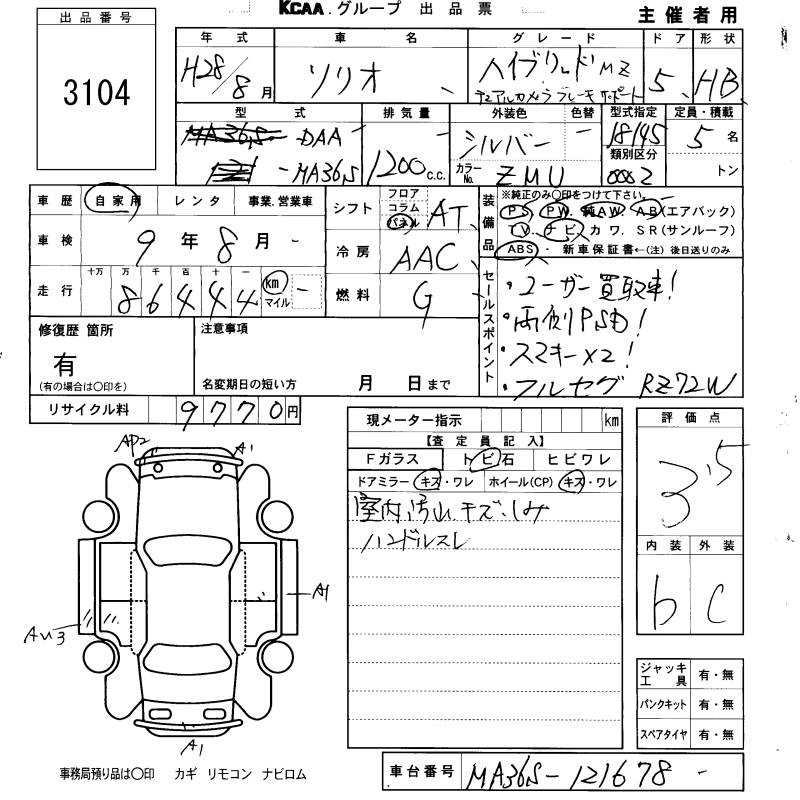 KCAA.グループ 出品票
主催者用
出品番号
3104
年式 車名 グレード ドア 形状
H28/8月 ソリオ ハイブリッドMZ 5 HB
デュアルカメラブレーキサポート
型式 排気量 外装色 色替 型式指定 定員・積載
MA36S DAA シルバー 18145 5名
類別区分
-MA36S 1200c.c. カラーNo. ZMU 0002 トン
車歴 自家用 レンタ 事業.営業車
車検 9年8月
走行 十万 万 千 百 十 一
86444 km マイル
シフト フロア コラム パネル AT
冷房 AAC
燃料 G
装備品 ※純正のみ○印をつけて下さい。
PS. PW. 純AW. AB(エアバック)
TV. ナビ カワ. SR(サンルーフ)
ABS・新車保証書←(注)後日送りのみ
セールスポイント
・ユーザー買取車!
・両側PSD!
・スマキーx2!
・フルセグ RZ72W
修復歴 箇所
有
(有の場合は○印を)
注意事項
名変期日の短い方 月 日まで
リサイクル料 9770円
現メーター指示 km
【査定員記入】
Fガラス トビ石 ヒビワレ
ドアミラー キズ・ワレ ホイール(CP) キズ・ワレ
室内汚れ.キズ.しみ
ハンドルスレ
評価点
3.5
内装 外装
b C
A1
A1
AU3
A1
ジャッキ工具 有・無
パンクキット 有・無
スペアタイヤ 有・無
事務局預り品は○印 カギ リモコン ナビロム
車台番号 MA36S-121678